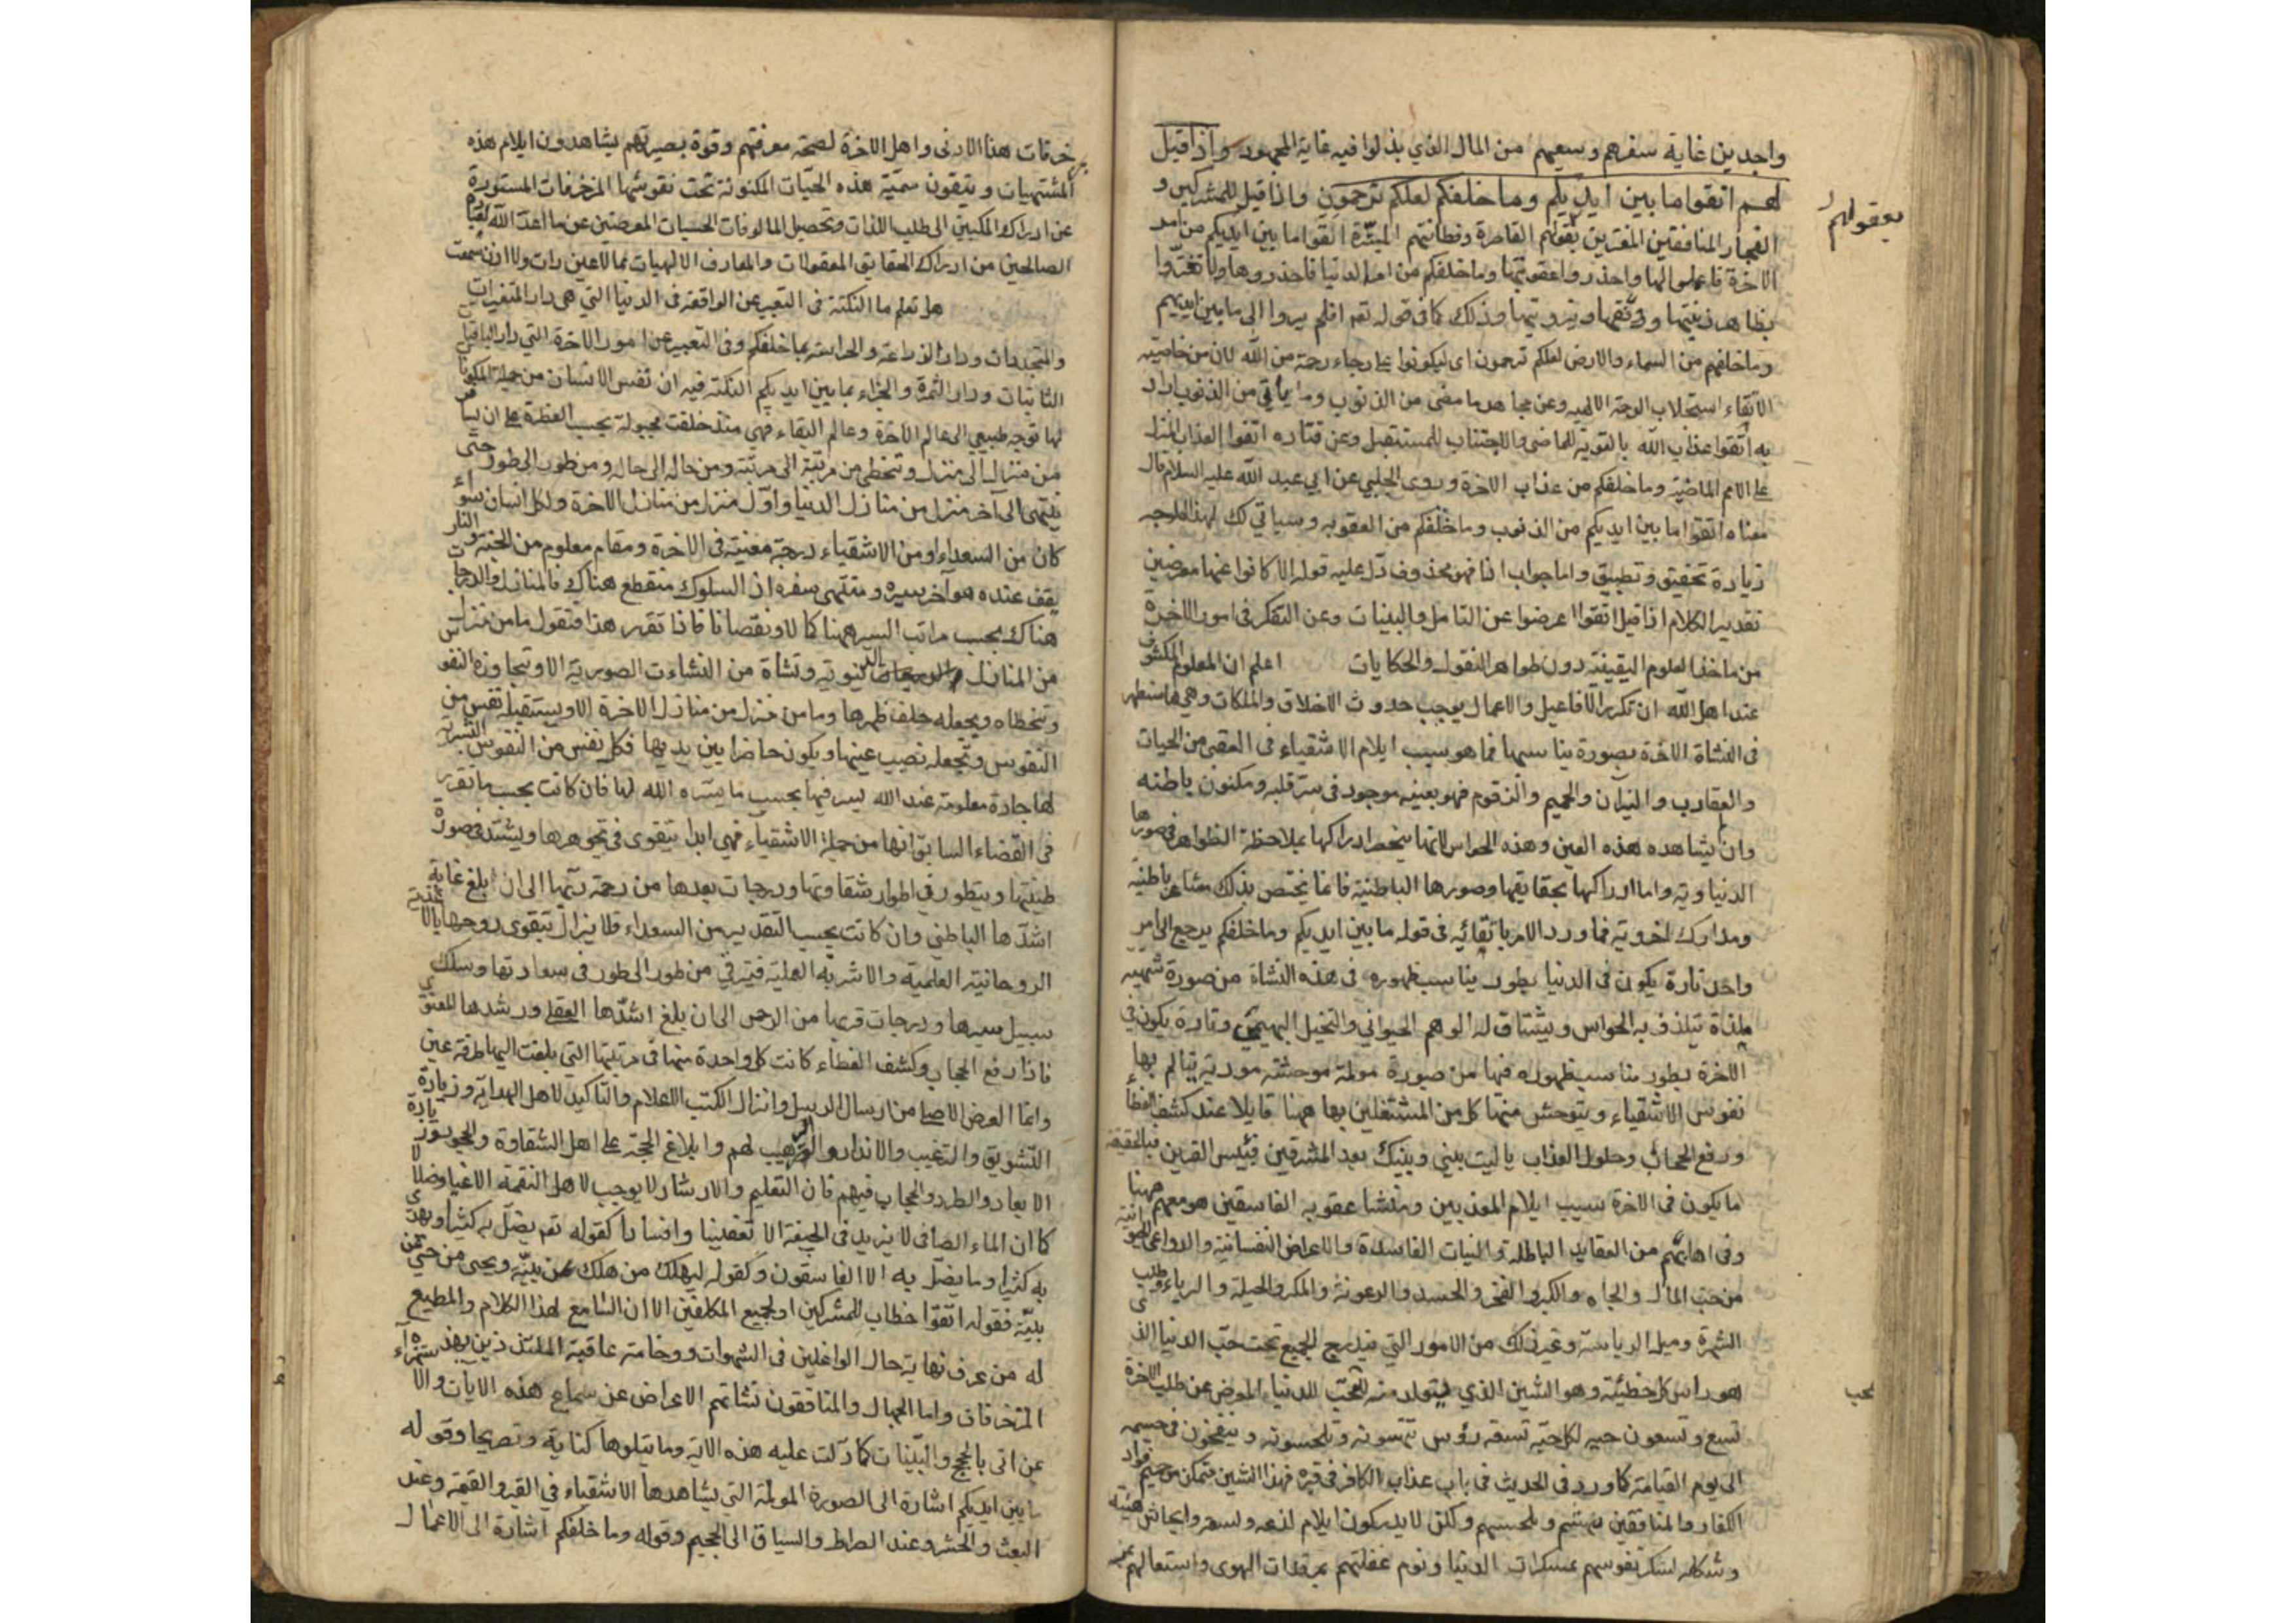 واجدين غاية سفرهم وسعيهم من المال الذي بذلوا فيه غاية المجهود واذا قيل
لهم اتقوا ما بين ايديكم وما خلفكم لعلكم ترحمون واذا قيل للمشركين و
الفجار المنافقين المغترين بعقولهم القاصرة وفطانتهم المبترة اتقوا ما بين ايديكم من امر
الاخرة فاعملوا لها واحذروا عقوبتها وما خلفكم من امر الدنيا فاحذروها ولا تغتروا
بظاهر زينتها وثروتها وذلك كما في قوله تعه افلم يروا الى ما بين ايديهم
وما خلفهم من السماء والارض لعلكم ترحمون اى ليكونوا على رجاء رحمة من الله لان من خاصية
الاتقاء استجلاب الرحمة الالهيه وعن مجاهد ما مضى من الذنوب وما يأتي من الذنوب اراد
به اتقوا عذاب الله بالتوبة للماضى والاجتناب للمستقبل وعن قتاده اتقوا العذاب المنزل
على الامم الماضية وما خلفكم من عذاب الاخرة وروى الحلبي عن ابي عبد الله عليه السلام قال
معناه اتقوا ما بين ايديكم من الذنوب وما خلفكم من العقوبه وسياتي لك لهذا الوجه
زيادة تحقيق وتطبيق واما جواب اذا فهو محذوف دل عليه قوله الا كانوا عنها معرضين
تقدير الكلام اذا قيل اتقوا اعرضوا عن التامل والبينات وعن التفكر فى امور الاخرة
من ماخذ العلوم اليقينية دون ظواهر النقول والحكايات اعلم ان المعلوم المكشوف
عند اهل الله ان تكرر الافاعيل والاعمال يوجب حدوث الاخلاق والملكات وهي ما ستظهر
فى النشاة الاخرة بصورة يناسبها فما هو سبب ايلام الاشقياء فى العقبى من الحيات
والعقارب والنيران والحميم والزقوم فهو بعينه موجود فى سر قلبه ومكنون باطنه
وان لم يشاهده هذه العين وهذه الحواس لانها ينحصر ادراكها بملاحظة الظواهر فى صورها
الدنياوية واما ادراكها بحقايقها وصورها الباطنية فانما يختص بذلك مشاعر باطنية
ومدارك اخروية فما ورد الامر باتقائه فى قوله ما بين ايديكم وما خلفكم يرجع الى امر
واحد تارة يكون فى الدنيا بطور يناسب ظهوره فى هذه النشاة من صورة شهية
ملذة تلذذ به الحواس ويشتاق له الوهم الحيواني والتخيل البهيمي وتارة يكون في
الاخرة بطور يناسب ظهوره فيها من صورة مولمة موحشة موذية يتالم بها
نفوس الاشقياء ويتوحش منها كل من المشتغلين بها ههنا قايلا عند كشف الغطاء
ورفع الحجاب وحلول العذاب يا ليت بيني وبينك بعد المشرقين فبئس القرين فبالحقيقة
ما يكون فى الاخرة سبب ايلام المعذبين ومنشا عقوبه الفاسقين هو معهم ههنا
وفى اهابهم من العقايد الباطلة والنيات الفاسدة والاعراض النفسانية والدواعى
من حب المال والجاه والكبر والفخر والحسد والرعونة والمكر والحيلة والرياء وطلب
الشهرة وميل الرياسة وغير ذلك من الامور التي يندرج الجميع تحت حب الدنيا الذى
هو راس كل خطيئة وهو التنين الذي يتولد منه لمحب الدنيا المعرض عن طلب الاخرة
تسع وتسعون حيه لكل حية تسعه رؤس ينهشونه ويلحسونه وينفخون فى جسمه
الى يوم القيامة كما ورد فى الحديث فى باب عذاب الكافر فى قبره فهذا التنين متمكن من صميم فؤاد
الكفار والمنافقين ينهشهم ويلحسهم ولكن لا يدركون ايلام لذعه ولسعه وايحاش هيئته
وشكله لسكر نفوسهم بمسكرات الدنيا ونوم غفلتهم بمرقدات الهوى واشتغالهم
بعقولهم
لمحب
خرفات هذا الادنى واهل الاخرة لصحة معرفتهم وقوة بصيرتهم يشاهدون ايلام هذه
المشتهيات ويتقون سمية هذه الحيات المكنونة تحت نقوشها المزخرفات المستورة
عن ادراك المكبين الى طلب اللذات وتحصيل المالوفات الحسيات المعرضين عن ما اعد الله لعباده
الصالحين من ادراك الحقايق المعقولات والمعارف الالهيات مما لا عين رات ولا اذن سمعت
هل تعلم ما النكتة فى التعبير عن الواقعة فى الدنيا التي هى دار المتغيرات
والمتجددات ودار الزراعة والحراثة بما خلفكم وفى التعبير عن امور الاخرة التي دار الباقيات
الثابتات ودار الثمرة والجزاء بما بين ايديكم النكتة فيه ان نفس الانسان من جملة المكونات
لها توجه طبيعي الى عالم الاخرة وعالم البقاء فهي منذ خلقت مجبولة بحسب الفطرة على ان يسافر
من منزل الى منزل وتتخطى من مرتبة الى مرتبة ومن حال الى حال ومن طور الى طور حتى
ينتهى الى آخر منزل من منازل الدنيا واول منزل من منازل الاخرة ولكل انسان سواء
كان من السعداء او من الاشقياء درجة معينة فى الاخرة ومقام معلوم من الجنة والنار
يقف عنده هو آخر سيره ومنتهى سفره اذ السلوك منقطع هناك فالمنازل والدرجات
هناك بحسب مراتب السير ههنا كمالا ونقصانا فاذا تقرر هذا فنقول ما من منزل
من المنازل الدنيوية ونشاة من النشاءت الصورية الا وتجاوزه النفوس
وتتخطاه ويجعله خلف ظهرها وما من منزل من منازل الاخرة الا ويستقبله نفس من
النفوس وتجعله نصب عينها ويكون حاضرا بين يديها فكل نفس من النفوس البشرية
لها جادة معلومة عند الله يسر فيها بحسب ما يسره الله لها فان كانت بحسب ما تقرر
فى القضاء السابق انها من جملة الاشقياء فهى ابدا يتقوى فى تجوهرها ويشتد فى صورة
طينتها ويتطور فى اطوار شقاوتها ودرجات بعدها من رحمة ربها الى ان ابلغ غاية
اشدها الباطني وان كانت بحسب التقدير من السعداء فلا يزال يتقوى روحها بالاغذية
الروحانية العلمية والاشربة العملية فيترقي من طور الى طور فى سعادتها وسلك
سبيل سيرها ودرجات قربها من الرحمن الى ان بلغ اشدها العقلى ورشدها المعنوى
فاذا رفع الحجاب وكشف الغطاء كانت كل واحدة منها فى مرتبتها التي بلغت اليها طرفة عين
وانما الغرض الاصلى من ارسال الرسل وانزال الكتب الاعلام والتاكيد لاهل الهداية وزيادة
التشويق والترغيب والانذار والترهيب لهم وابلاغ الحجة على اهل الشقاوة والحجود وزيادة
الابعاد والطرد والحجاب فيهم فان التعليم والارشاد لا يوجب لاهل النقمة الا غيا وضلالا
كما ان الماء الصافى لا يزيد فى الجيفة الا تعفينا وافسادا كقوله تعه يضل به كثيرا ويهدى
به كثيرا وما يضل به الا الفاسقون وكقوله ليهلك من هلك عن بينة ويحيى من حي عن
بينة فقوله اتقوا خطاب للمشركين او لجميع المكلفين الا ان السامع لهذا الكلام والمطيع
له من عرف نهاية حال الواغلين فى الشهوات ووخامة عاقبة الملتذذين بهذه
المزخرفات واما الجهال والمنافقون نشاتهم الاعراض عن سماع هذه الايات والاستهزاء
عن اتى بالحجج والبينات كما دلت عليه هذه الاية وما يتلوها كناية وتصريحا وقوله
ما بين ايديكم اشارة الى الصورة المولمة التى يشاهدها الاشقياء في القبر والقيمة وعند
البعث والحشر وعند الصراط والسياق الى الجحيم وقوله وما خلفكم اشارة الى الاعمال